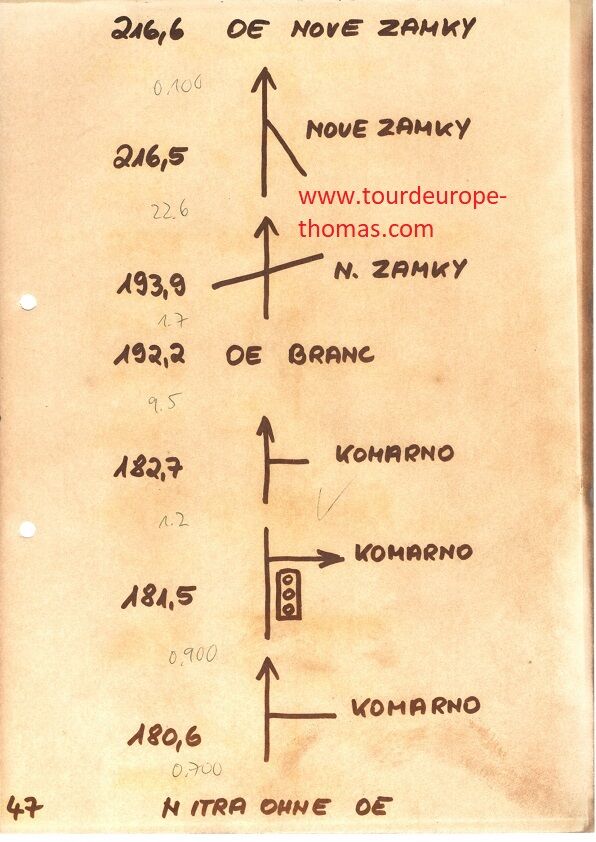 216,6 OE NOVE ZAMKY
0.100
NOVE ZAMKY
216,5
www.tourdeurope-
thomas.com
22.6
193,9 N. ZAMKY
1.7
192,2 OE BRANC
9.5
182,7 KOMARNO
1.2
KOMARNO
181,5
0.900
KOMARNO
180,6
0.700
47 NITRA OHNE OE